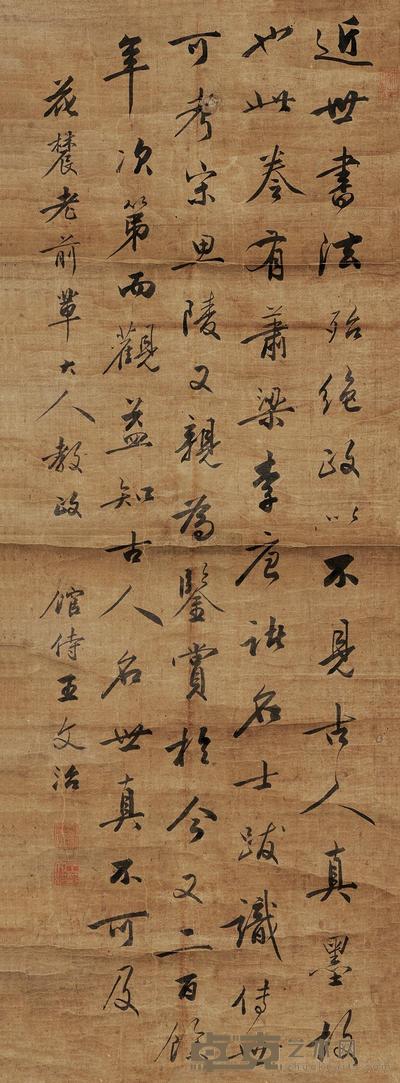 近世書法殆絶政以不見古人真墨故
也此卷有蕭梁李唐諸名士跋識傳世
可考宋思陵又親為鑒賞於今又二百餘
年次第而觀益知古人名世真不可及
花農老前輩大人教政 館侍王文治